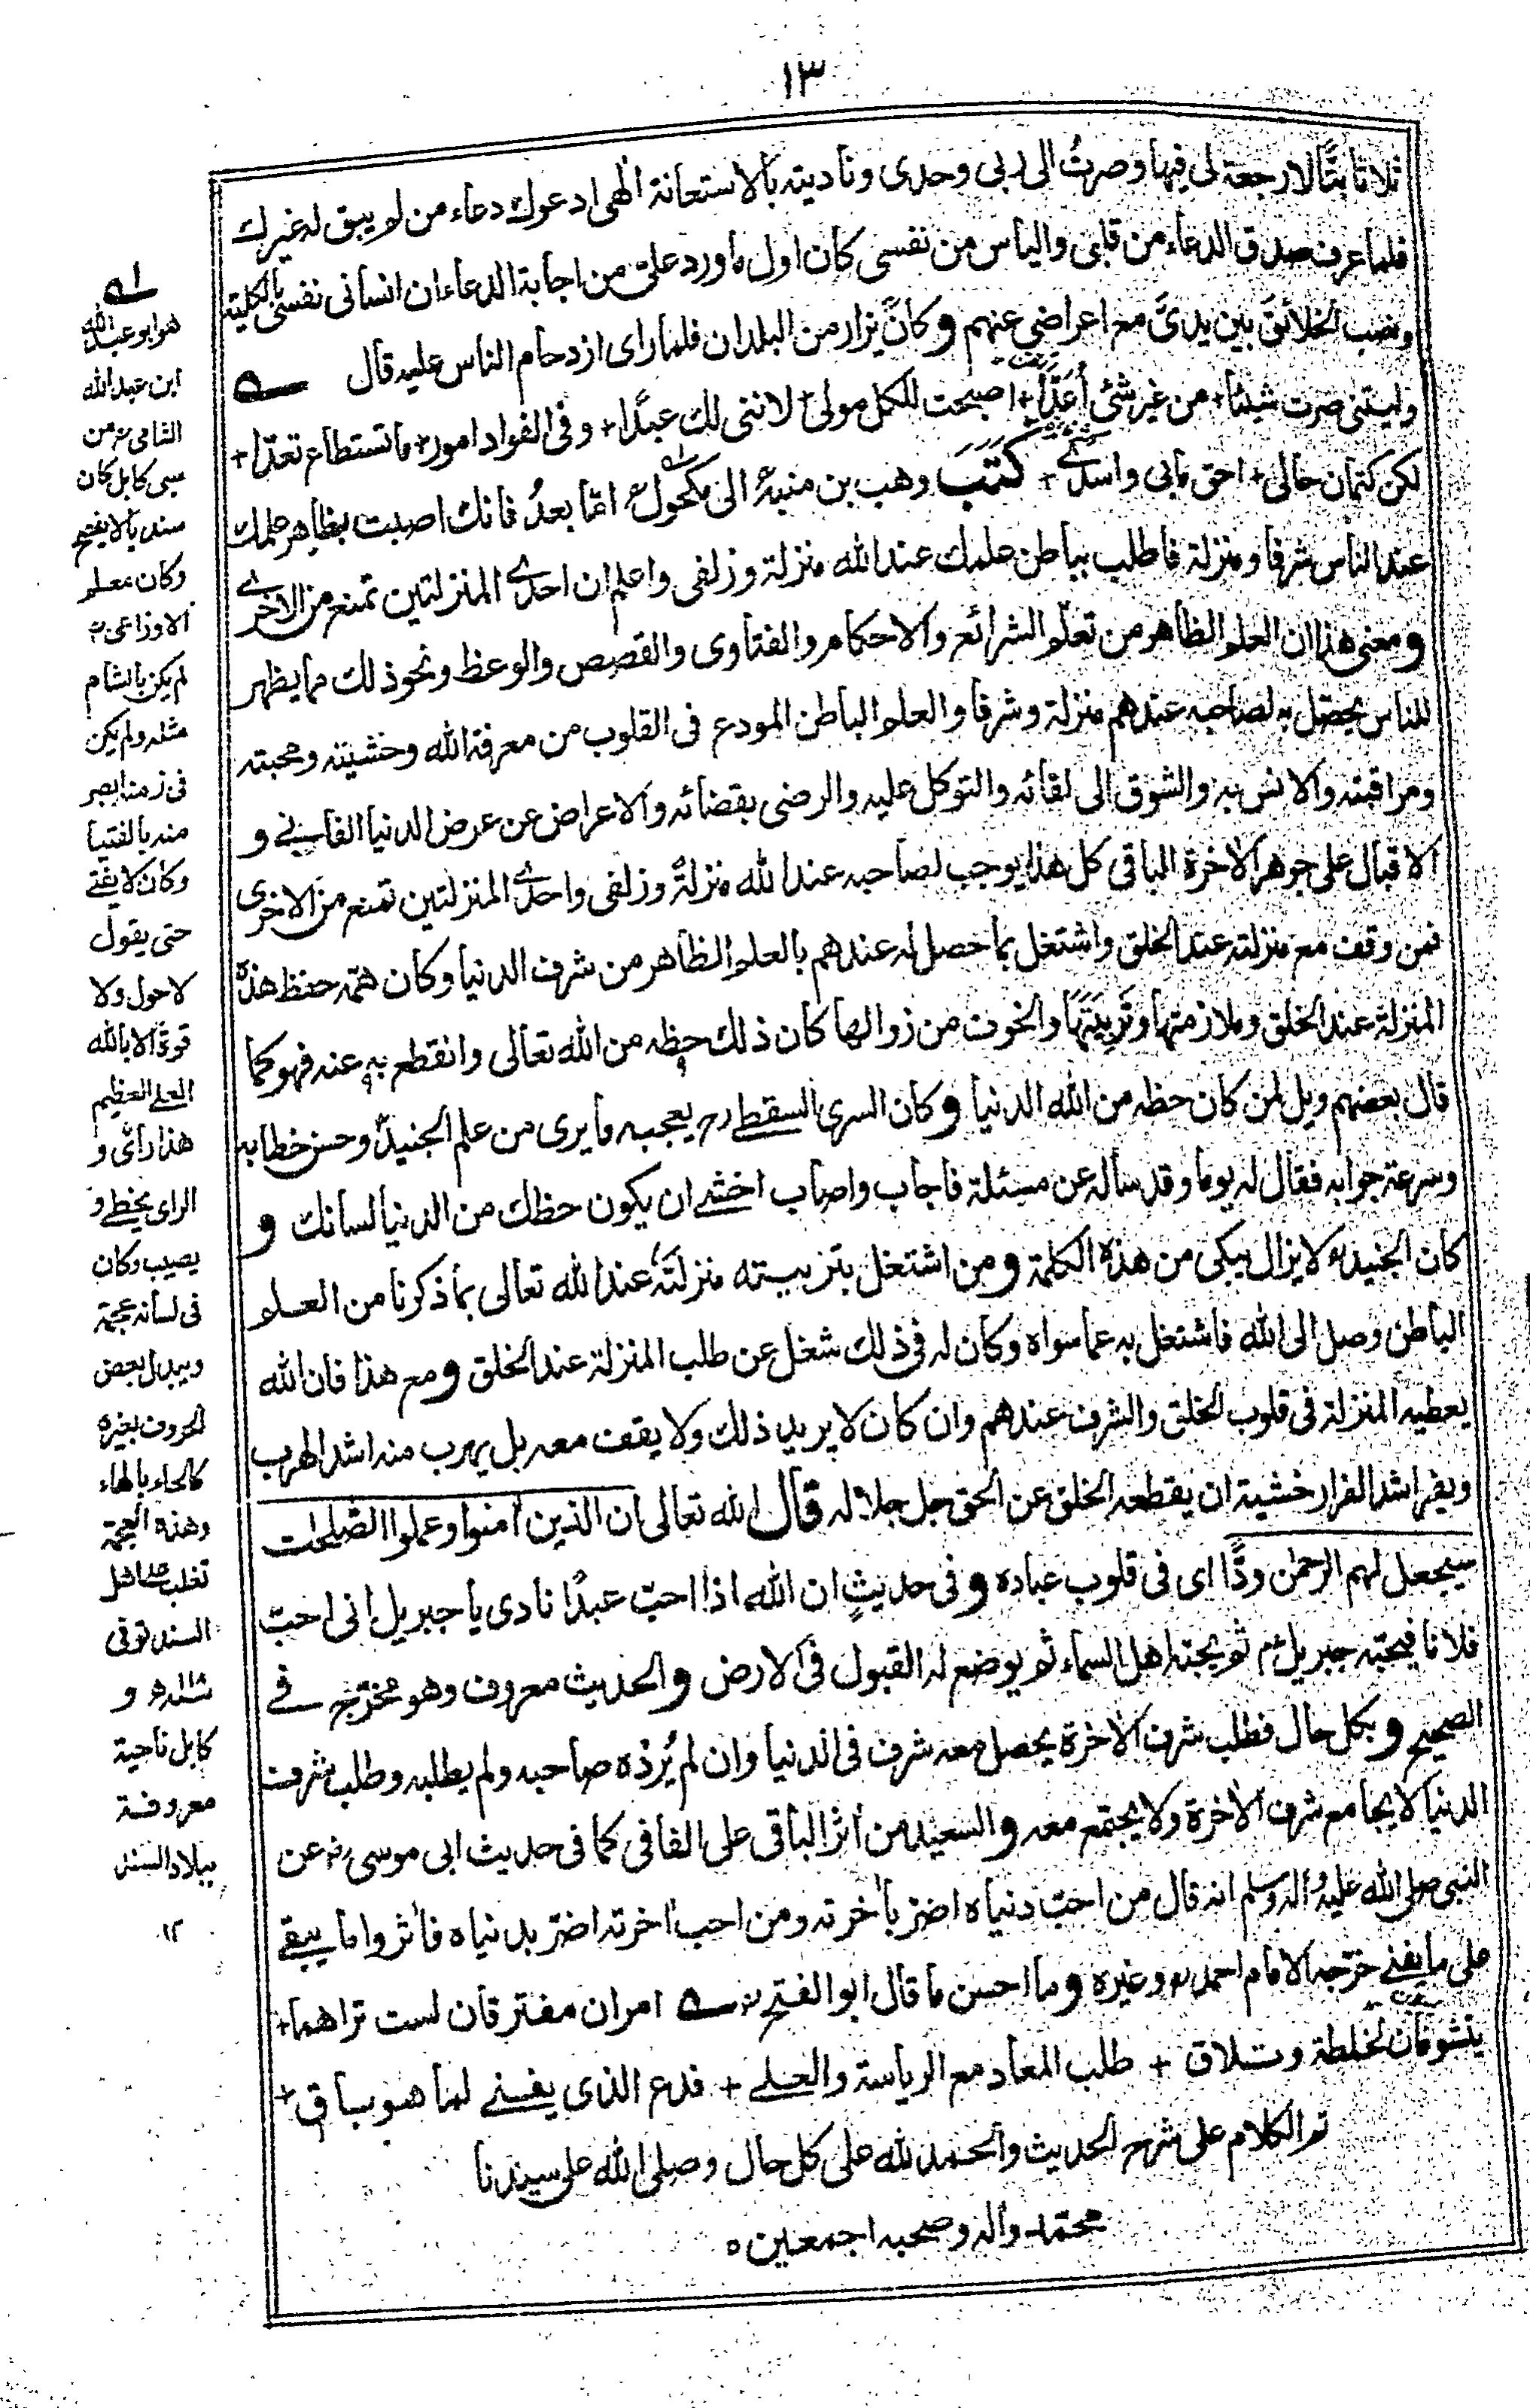 ١٣
ثلاثا بتًّا لا رجعة لى فيها وصرتُ الى ربى وحدى وناديته بالاستعانة الٰهى ادعوك دعاء من لم يبق له غيرك
فلما عرف صدق الدعاء من قلبى والياس من نفسى كان اول ما ورد علىّ من اجابة الدعاء ان انسانى نفسى بالكلية
ونصب الخلائق بين يدىَّ مع اعراضى عنهم وكان يزار من البلدان فلما راى ازدحام الناس عليه قال
وليتنى صرت شيئا + من غير شئ أُعَدَّا + اصبحت للكل مولى + لاننى لك عبدًا + وفى الفواد امور + ما تستطاع تعدّا +
لكن كتمان حالى + احق مابى واسدى + كتب وهب بن منبه الى مكحول اما بعدُ فانك اصبت بظاهر علمك
عند الناس شرفا ومنزلة فاطلب بباطن علمك عند الله منزلة وزلفى واعلم ان احدى المنزلتين تمنع من الاخرى
ومعنى هذا ان العلم الظاهر من تعلّم الشرائع والاحكام والفتاوى والقصص والوعظ ونحو ذلك مما يظهر
للناس يحصل به لصاحبه عندهم منزلة وشرفا والعلم الباطن المودع فى القلوب من معرفة الله وخشيته ومحبته
ومراقبته والانس به والشوق الى لقائه والتوكل عليه والرضى بقضائه والاعراض عن عرض الدنيا الفانى و
الاقبال على جوهر الاخرة الباقى كل هذا يوجب لصاحبه عند الله منزلةً وزلفى واحدى المنزلتين تمنع من الاخرى
فمن وقف مع منزلته عند الخلق واشتغل بما حصل له عندهم بالعلم الظاهر من شرف الدنيا وكان همّه حفظ هذه
المنزلة عند الخلق وملازمتها وتربيتَها والخوف من زوالها كان ذلك حظه من الله تعالى وانقطع به عنه فهو كما
قال بعضهم ويل لمن كان حظه من الله الدنيا وكان السرى السقطى رح يعجبه ما يرى من علم الجنيد وحسن خطابه
وسرعة جوابه فقال له يوما وقد ساله عن مسئلة فاجاب واصاب اخشى ان يكون حظك من الدنيا لسانك و
كان الجنيد لا يزال يبكى من هذه الكلمة ومن اشتغل بتربيته منزلتَه عند الله تعالى بما ذكرنا من العلم
الباطن وصل الى الله فاشتغل به عما سواه وكان له فى ذلك شغل عن طلب المنزلة عند الخلق ومع هذا فان الله
يعطيه المنزلة فى قلوب الخلق والشرف عندهم وان كان لا يريد ذلك ولا يقف معه بل يهرب منه اشد الهرب
ويفر اشد الفرار خشية ان يقطعه الخلق عن الحق جل جلاله قال الله تعالى ان الذين اٰمنوا وعملوا الصّٰلحٰت
سيجعل لهم الرحمٰن ودًّا اى فى قلوب عباده وفى حديثٍ ان الله اذا احبّ عبدًا نادى يا جبريل انى احبّ
فلانا فيحبّه جبريل ثم يحبه اهل السماء ثم يوضع له القبول فى الارض والحديث معروف وهو مخرّج فى
الصحيح وبكل حال فطلب شرف الاٰخرة يحصل معه شرف فى الدنيا وان لم يُرِدْه صاحبه ولم يطلبه وطلب شرف
الدنيا لا يجامع شرف الاٰخرة ولا يجتمع معه والسعيد من اٰثر الباقى على الفانى كما فى حديث ابى موسى عن
النبى صلى الله عليه واٰله وسلم انه قال من احبّ دنياه اضرّ باٰخرته ومن احب اٰخرته اضرّ بدنياه فاٰثروا ما يبقى
على ما يفنى خرّجه الامام احمد وغيره وما احسن ما قال ابو الفتح امران مفترقان لست تراهما +
يتشوفان لخلطة وتلاق + طلب المعاد مع الرياسة والعلى + فدع الذى يفنى لما هو باق +
تم الكلام على شرح الحديث والحمد لله على كل حال وصلى الله على سيدنا
محمّد واٰله وصحبه اجمعين ٥
هو ابو عبد الله
ابن عبد الله
الشامى من
سبى كابل كان
سنديا لا يفصح
وكان معلم
الاوزاعى
لم يكن بالشام
مثله ولم يكن
فى زمنه ابصر
منه بالفتيا
وكان لا يفتى
حتى يقول
لا حول ولا
قوة الا بالله
العلى العظيم
هذا رائى و
الراى يخطى و
يصيب وكان
فى لسانه عجمة
ويبدل بعض
الحروف بغيره
كالحاء بالهاء
وهذه العجمة
تغلب على اهل
السند توفى
و
كابل ناحية
معروفة
ببلاد السند
١٢